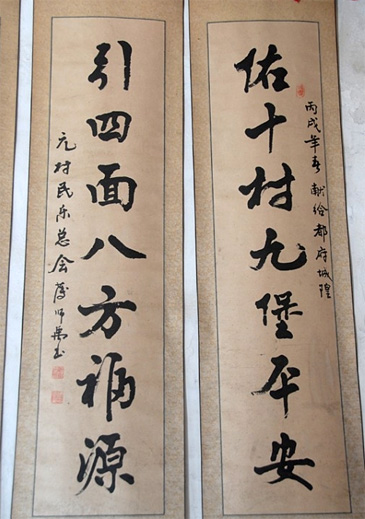 佑十村九堡平安
丙戌年春献给都府城隍
引四面八方福源
元村民乐总会